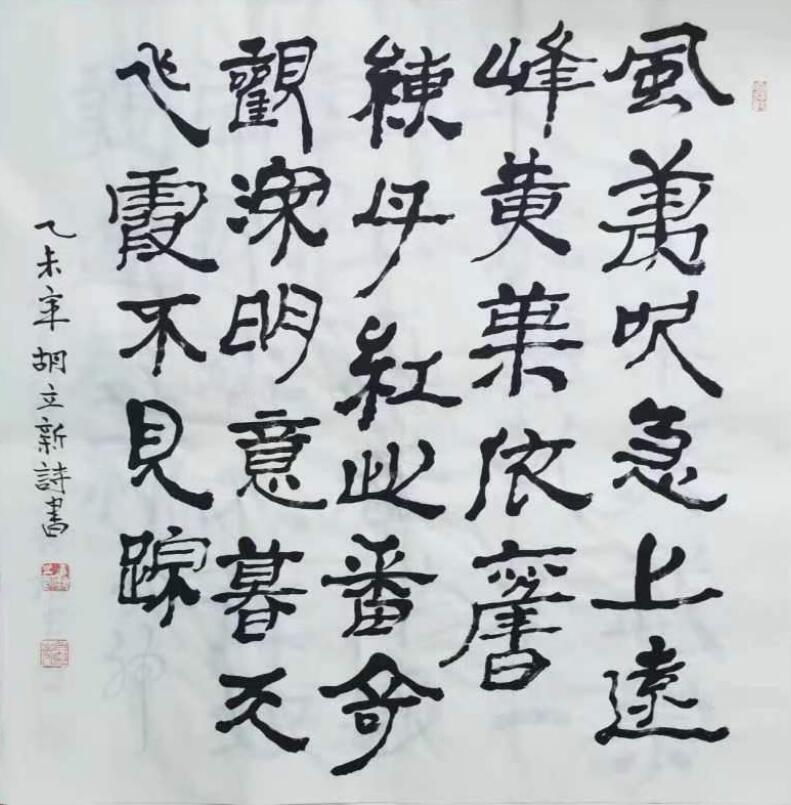 風萬呎急上遠
峰黄葉依舊
練丹紅此番奇
觀深明意暮天
飞霞不見踪
乙未年胡立新詩書